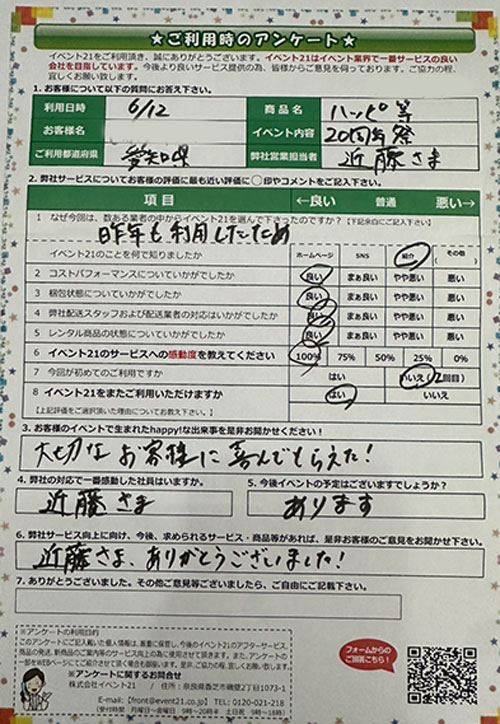 ★ご利用時のアンケート★
イベント21をご利用頂き、誠にありがとうございます。イベント21はイベント業界で一番サービスの良い
会社を目指しています。今後より良いサービス提供の為、皆様からご意見を伺っております。ご協力の程、
宜しくお願い致します。
1. お客様について以下の質問にお答え下さい。
利用日時 6/12 商品名 ハッピ等
お客様名 イベント内容 20周年祭
ご利用都道府県 愛知県 弊社営業担当者 近藤さま
2. 弊社サービスについてお客様の評価に最も近い評価に○印やコメントをご記入下さい。
項目 ←良い 普通 悪い→
1 なぜ今回は、数ある業者の中からイベント21を選んで下さったのですか？【下記余白にご記入下さい】
昨年も利用したため
イベント21のことを何で知りましたか ホームページ SNS 紹介 その他 (
2 コストパフォーマンスについていかがでしたか 良い まぁ良い やや悪い 悪い
3 梱包状態についていかがでしたか 良い まぁ良い やや悪い 悪い
4 弊社配送スタッフおよび配送業者の対応はいかがでしたか 良い まぁ良い やや悪い 悪い
5 レンタル商品の状態についていかがでしたか 良い まぁ良い やや悪い 悪い
6 イベント21のサービスへの感動度を教えてください 100% 75% 50% 25% 0%
7 今回が初めてのご利用ですか はい いいえ (2回目)
8 イベント21をまたご利用いただけますか はい いいえ
【上記評価をご選択頂いた理由についてお教え下さい。】
3. お客様のイベントで生まれたhappy!な出来事を是非お聞かせください！
大切なお客様に喜んでもらえた！
4. 弊社の対応で一番感動した社員はいますか。 5. 今後イベントの予定はございますでしょうか？
近藤さま あります
6. 弊社サービス向上に向け、今後、求められるサービス・商品等があれば、是非お客様のご意見をお聞かせ下さい。
近藤さま、ありがとうございました！
7. ありがとうございました。その他ご意見等ございましたら、ご自由にご記載下さい。
※アンケートの利用目的
このアンケートにご記入戴いた個人情報は、厳重に保管し、今後のイベント21のアフターサービス、
商品の発送、新商品のご案内等のサービス向上の為に使用させて頂きます。また、アンケートの
一部をWEBページにてご紹介させて頂く場合も御座います。是非、ご協力の程、宜しくお願い致します。
※アンケートに関するお問合せ
株式会社イベント21 / 住所：奈良県香芝市磯壁2丁目1073-1
E-mail:【front@event21.co.jp】TEL: 0120-021-218
(受付時間 月曜日～金曜日 9時～20時半 土日祝 9時～18時)
フォームからの
ご回答こちら！